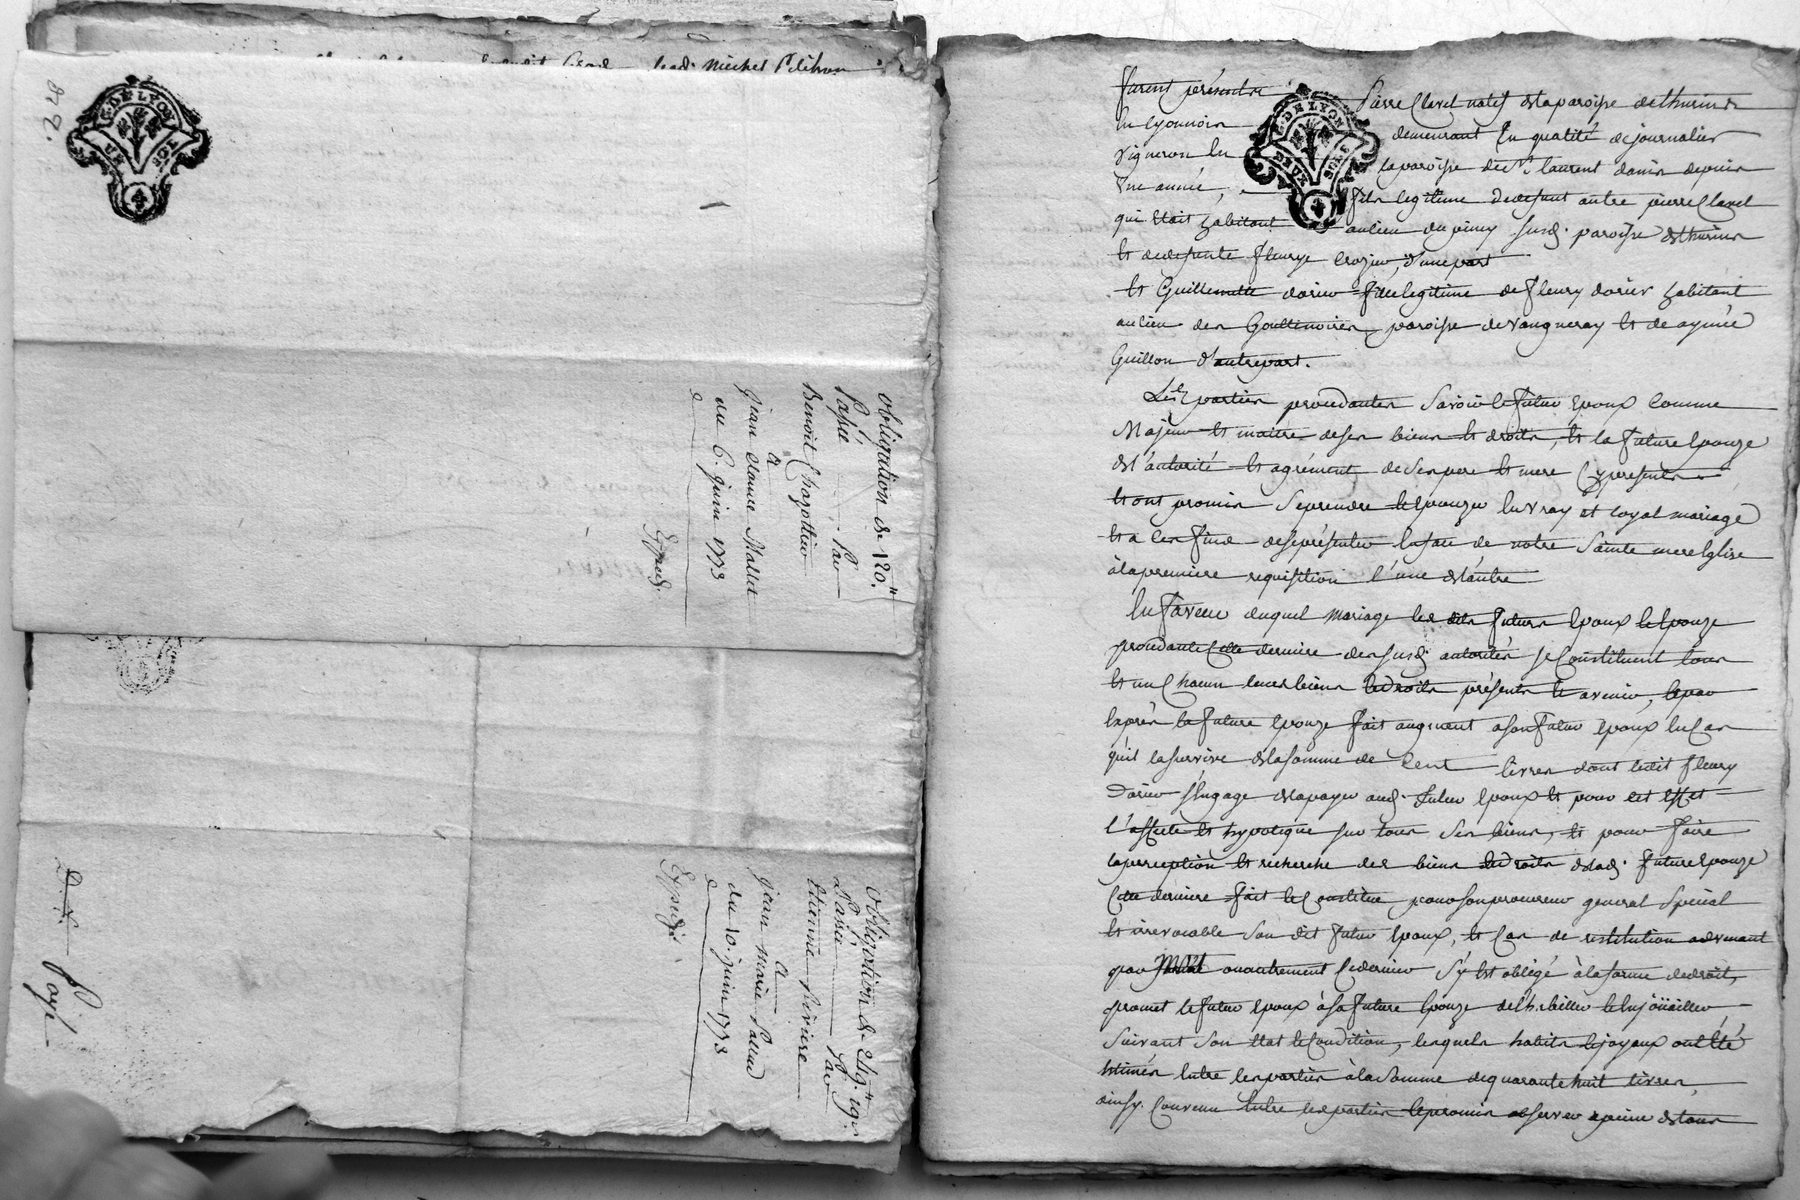 278.
G. DE LYON
Obligation de 120.tt
Passée par
Benoit Chazottier
a
Jean claude Mallet
du 6. juin 1773
Expedy.
Obligation de
Passée par
Etienne Riviere
a
Jean marie
du 10. juin 1773
Expedy.
Payé
furent présents Pierre Clavel natif de la paroisse de thurins
En Lyonnois demeurant En qualité de journalier
vigneron En la paroisse de St laurent d'oingt depuis
une année, fils legitime de deffunt autre pierre Clavel
qui etoit habitant au lieu du susd. paroisse de thurins
Et de deffunte fleurye d'une part
Et Guillemette dorier fille legitime de fleury dorier habitant
au lieu des Gouttenoires paroisse de vaugneray Et de aymée
Guillon d'autre part.
Lesd parties procedantes Savoir le futur Epoux Comme
Majeur Et maitre de ses biens Et droits, Et la future Epouze
de l'autorité Et agrément de Ses pere Et mere Cy presents
Et ont promis Se prendre Et Epouzer En vray et loyal mariage
Et a Ces fins de se présenter En face de notre Sainte mere Eglise
à la premiere requisition l'une de l'autre
En faveur duquel mariage les dits futurs Epoux Et Epouze
procedante Cette derniere des susd. autorités se Constituent tous
Et un Chacun leurs biens Et droits présents Et avenir, Et par
Exprès la future Epouze fait augment a son futur Epoux En Cas
qu'il la survive de la somme de Cent livres dont ledit fleury
Dorier s'Engage de la payer aud. futur Epoux Et pour cet Effet
l'affecte Et hypoteque sur tous Ses biens, Et pour faire
la perception Et recherche des biens Et droits de lad. future Epouze
Cette derniere fait Et Constitue pour son procureur general Special
Et irrevocable Son dit futur Epoux, Et Cas de restitution advenant
par mort ou autrement Ce dernier S'y Est obligé à la forme de droit,
promet le futur Epoux à sa future Epouze de l'habiller Et Enjoüailler
Suivant Son Etat Et Condition, lesquels habits Et joyaux ont Eté
Estimés Entre les parties à la Somme de quarante huit livres,
ainsy Convenu Entre les parties Et promis observer a peine de tous